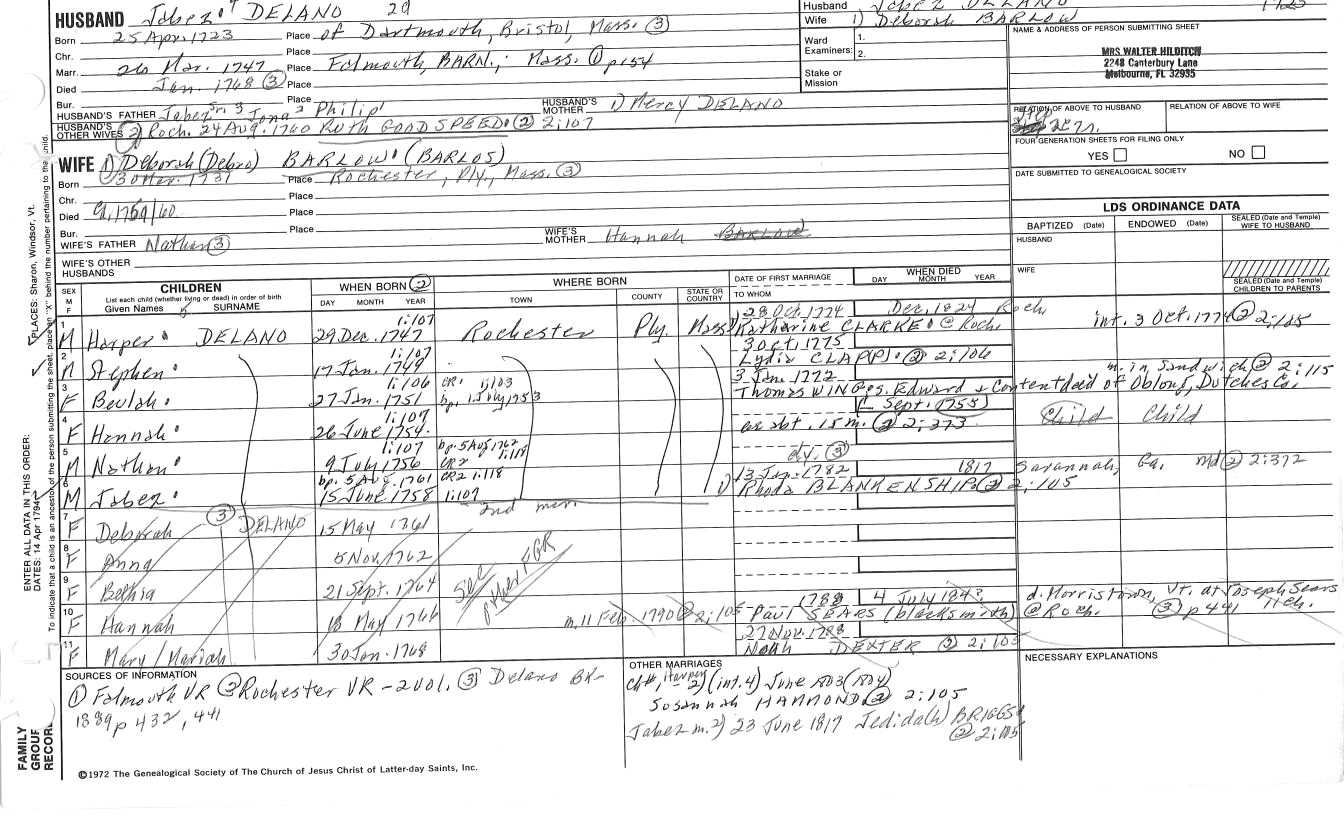 HUSBAND Jabez DELANO 29
Husband Jabez DELANO 1723
Wife 1) Deborah BARLOW
Born 25 Apr. 1723 Place of Dartmouth, Bristol, Mass. (3)
Chr. Place
Marr. 26 Mar. 1747 Place Falmouth, BARN., Mass. (1) p154
Died Jan. 1768 (3) Place
Bur. Place
Ward Examiners: 1. 2.
Stake or Mission
NAME & ADDRESS OF PERSON SUBMITTING SHEET
MRS WALTER HILDITCH
2248 Canterbury Lane
Melbourne, FL 32935
HUSBAND'S FATHER Jabez Sr. 3 Jona 2 Philip 1 HUSBAND'S MOTHER 1) Mercy DELANO
HUSBAND'S OTHER WIVES 2) Roch. 24 Aug. 1760 Ruth GOODSPEED (2) 2:107
RELATION OF ABOVE TO HUSBAND
RELATION OF ABOVE TO WIFE
FOUR GENERATION SHEETS FOR FILING ONLY
YES NO
DATE SUBMITTED TO GENEALOGICAL SOCIETY
WIFE 1) Deborah (Debro) BARLOW (BARLOS)
Born 30 Mar. 1731 Place Rochester, Ply., Mass. (3)
Chr. Place
Died Ca. 1759/60 Place
Bur. Place
WIFE'S FATHER Nathan (3) WIFE'S MOTHER Hannah BARLOW
WIFE'S OTHER HUSBANDS
LDS ORDINANCE DATA
BAPTIZED (Date) ENDOWED (Date) SEALED (Date and Temple) WIFE TO HUSBAND
HUSBAND
WIFE
SEALED (Date and Temple) CHILDREN TO PARENTS
SEX M F
CHILDREN
List each child (whether living or dead) in order of birth
Given Names SURNAME
WHEN BORN (2)
DAY MONTH YEAR
WHERE BORN
TOWN COUNTY STATE OR COUNTRY
DATE OF FIRST MARRIAGE
TO WHOM
WHEN DIED
DAY MONTH YEAR
1 M Harper DELANO 1:107 29 Dec. 1747 Rochester Ply. Mass. 28 Oct. 1774 Dec. 1824 Roch.
1) Katharine CLARKE @ Roch. int. 3 Oct. 1774 (2) 2:105
2 M Stephen 1:107 17 Jan. 1749 3 Oct. 1775
Lydia CLAP(P) (2) 2:106
3 F Beulah 1:106 27 Jan. 1751 CR1 1:103 bp. 1 July 1753 3 Jan. 1772 m. in Sandwich (2) 2:115
Thomas WING s. Edward & Content dead of Oblong, Dutchess Co.
4 F Hannah 1:107 26 June 1754 Sept. 1755 Child Child
as abt. 15 m. (2) 2:373
5 M Nathan 1:107 9 July 1756 bp. 5 Aug 1762 CR2 1:118 dy. (3)
6 M Jabez bp. 5 Aug. 1761 CR2 1:118 15 June 1758 1:107 13 Jan. 1782 1817 Savannah, Ga. (2) 2:372
1) Rhoda BLANKENSHIP (2) 2:105
2nd marr
7 F Deborah (3) DELANO 15 May 1761
8 F Anna 5 Nov. 1762
9 F Bethia 21 Sept. 1764
See other FGR
10 F Hannah 18 May 1766 m. 11 Feb. 1790 (2) 2:105 1788 4 July 184 d. Morristown, Vt. at Joseph Sears
Paul SEARS (blacksmith) @ Roch. (3) p 441
11 F Mary / Mariah 30 Jan. 1768 27 Nov. 1788
Noah DEXTER (2) 2:105
SOURCES OF INFORMATION
(1) Falmouth VR (2) Rochester VR - 2 vol. (3) Delano Bk-
1889 p 432, 441
OTHER MARRIAGES
Ch #1 Harper 2) (int. 4) June 1803 (1804)
Susannah HAMMOND (2) 2:105
Jabez m. 2) 23 June 1817 Jedida(h) BRIGGS
(2) 2:105
NECESSARY EXPLANATIONS
©1972 The Genealogical Society of The Church of Jesus Christ of Latter-day Saints, Inc.
FAMILY GROUP RECORD
ENTER ALL DATA IN THIS ORDER:
DATES: 14 Apr 1794
PLACES: Sharon, Windsor, Vt.
To indicate that a child is an ancestor of the person submitting the sheet, place an "X" behind the number pertaining to the child.